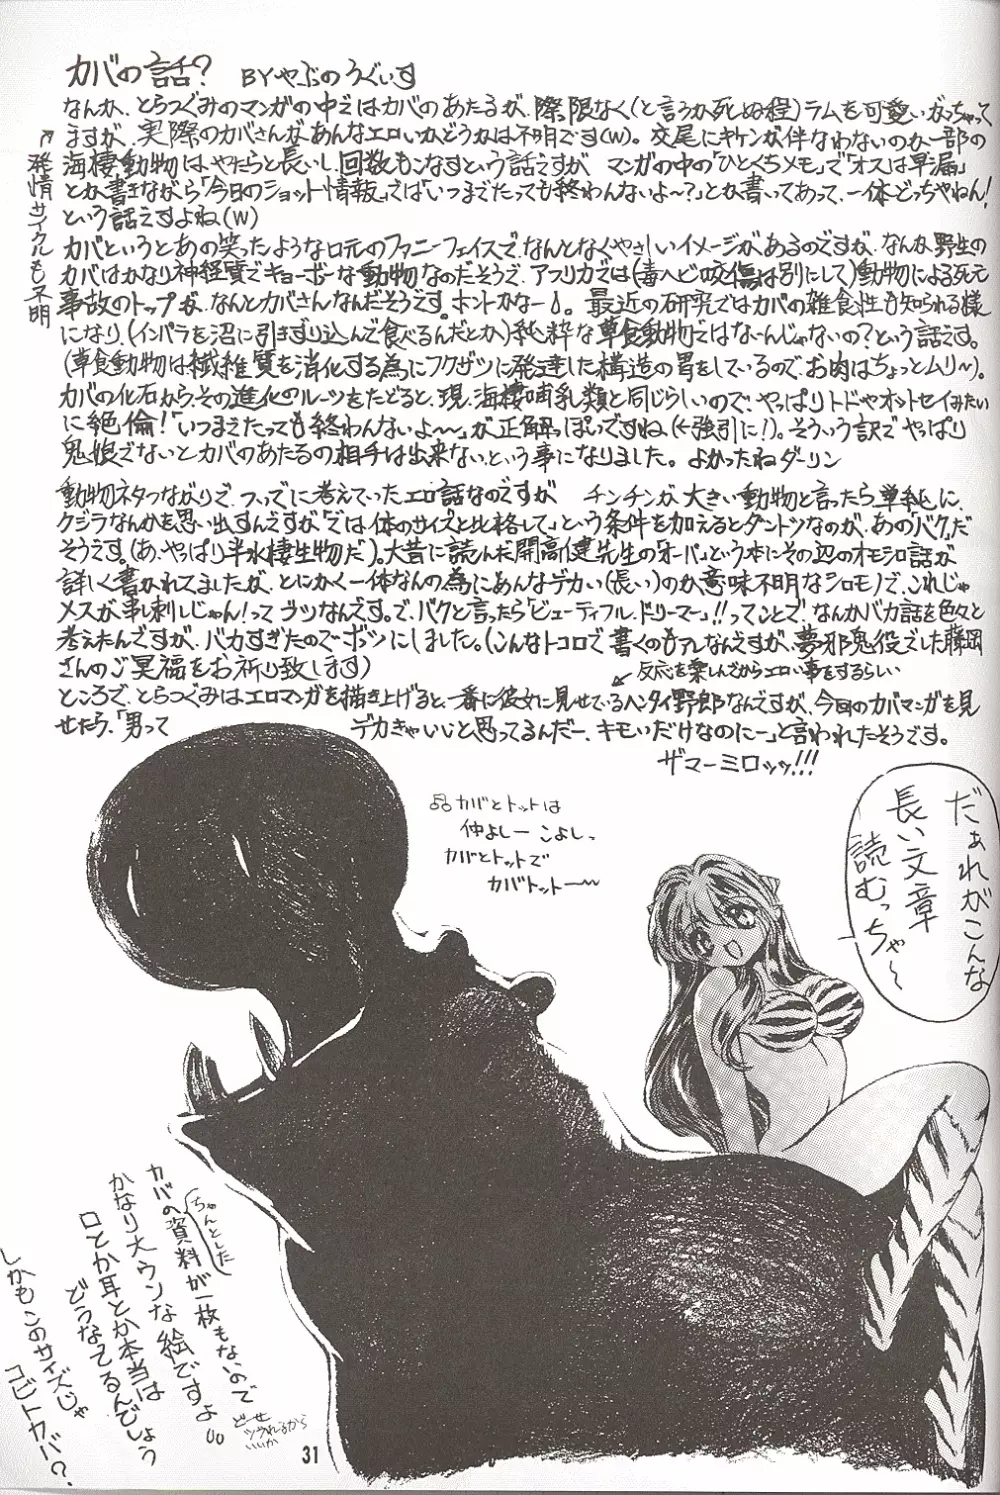 カバの話? BYやぶのうぐいす
なんか、とらつぐみのマンガの中ではカバのあたるが、際限なく(と言うか死ぬ程)ラムを可愛いがっちゃって
ますが、実際のカバさんがあんなエロいかどうかは不明です(w)。交尾にキケンが伴なわないのか一部の
海棲動物は、やたらと長いし、回数もこなすという話ですが マンガの中の「ひとくちメモ」で「オスは早漏」
とか書きながら「今日のショット情報」では「いつまでたっても終わんないよ〜?」とか書いてあって、一体どっちやねん!
という話ですよね(w)
↖発情サイクルも不明
カバというとあの笑ったような口元のファニーフェイスで、なんとなくやさしいイメージがあるのですが、なんか野生の
カバはかなり神経質でキョーボーな動物なのだそうで、アフリカでは(毒ヘビの咬傷は別にして)動物による死亡
事故のトップが、なんとカバさんなんだそうです。ホントかなー。最近の研究ではカバの雑食性も知られる様
になり、(インパラを沼に引きずり込んで食べるんだとか)純粋な草食動物ではな〜んじゃないの?という話です。
(草食動物は繊維質を消化する為にフクザツに発達した構造の胃をしているので、お肉はちょっとムリ〜)。
カバの化石から、その進化のルーツをたどると、現、海棲哺乳類と同じらしいので、やっぱりトドやオットセイみたい
に絶倫!「いつまでたっても終わんないよ〜〜」が正解っぽいですね、(←強引に!)。そういう訳でやっぱり
鬼娘でないとカバのあたるの相手は出来ない、という事になりました。よかったねダーリン
動物ネタつながりで、ついでに考えていったエロ話なのですが チンチンが大きい動物と言ったら単純に、
クジラなんかを思い出すんですが「では、体のサイズと比格して」という条件を加えるとダントツなのが、あの「バク」だ
そうです。(あ、やっぱり半水棲生物だ)。大昔に読んだ開高健先生の「オーパ」という本にその辺のオモシロ話が
詳しく書かれてましたが、とにかく一体なんの為にあんなデカい(長い)のか意味不明なシロモノで、これじゃ
メスが串刺しじゃん!ってウソなんです。で、バクと言ったら「ビューティフル、ドリーマー」!!ってことで、なんかバカ話を色々と
考えたんですが、バカすぎたのでボツにしました。(こんなトコロで書くのもアレなんですが、夢邪鬼役でした藤岡
さんのご冥福をお祈り致します)
↙反応を楽しんでからエロい事をするらしい
ところで、とらつぐみはエロマンガを描き上げると、一番に彼女に見せているヘンタイ野郎なんですが、今回のカバマンガを見
せたら、「男って デカきゃいいと思ってるんだー、キモいだけなのにー」と言われたそうです。
ザマーミロッッ!!!
♫カバとトットは
仲よしー こよし〜
カバとトットで
カバトットー〜
だぁれがこんな
長い文章
読むっちゃ〜
カバの資料が一枚もないので
ちゃんとした
かなり大ウソな絵ですよ。
口とか耳とか本当は
どうなってるんでしょう
しかもこのサイズじゃ
コビトカバ?
どーせ
ツブれるから
いいか
31